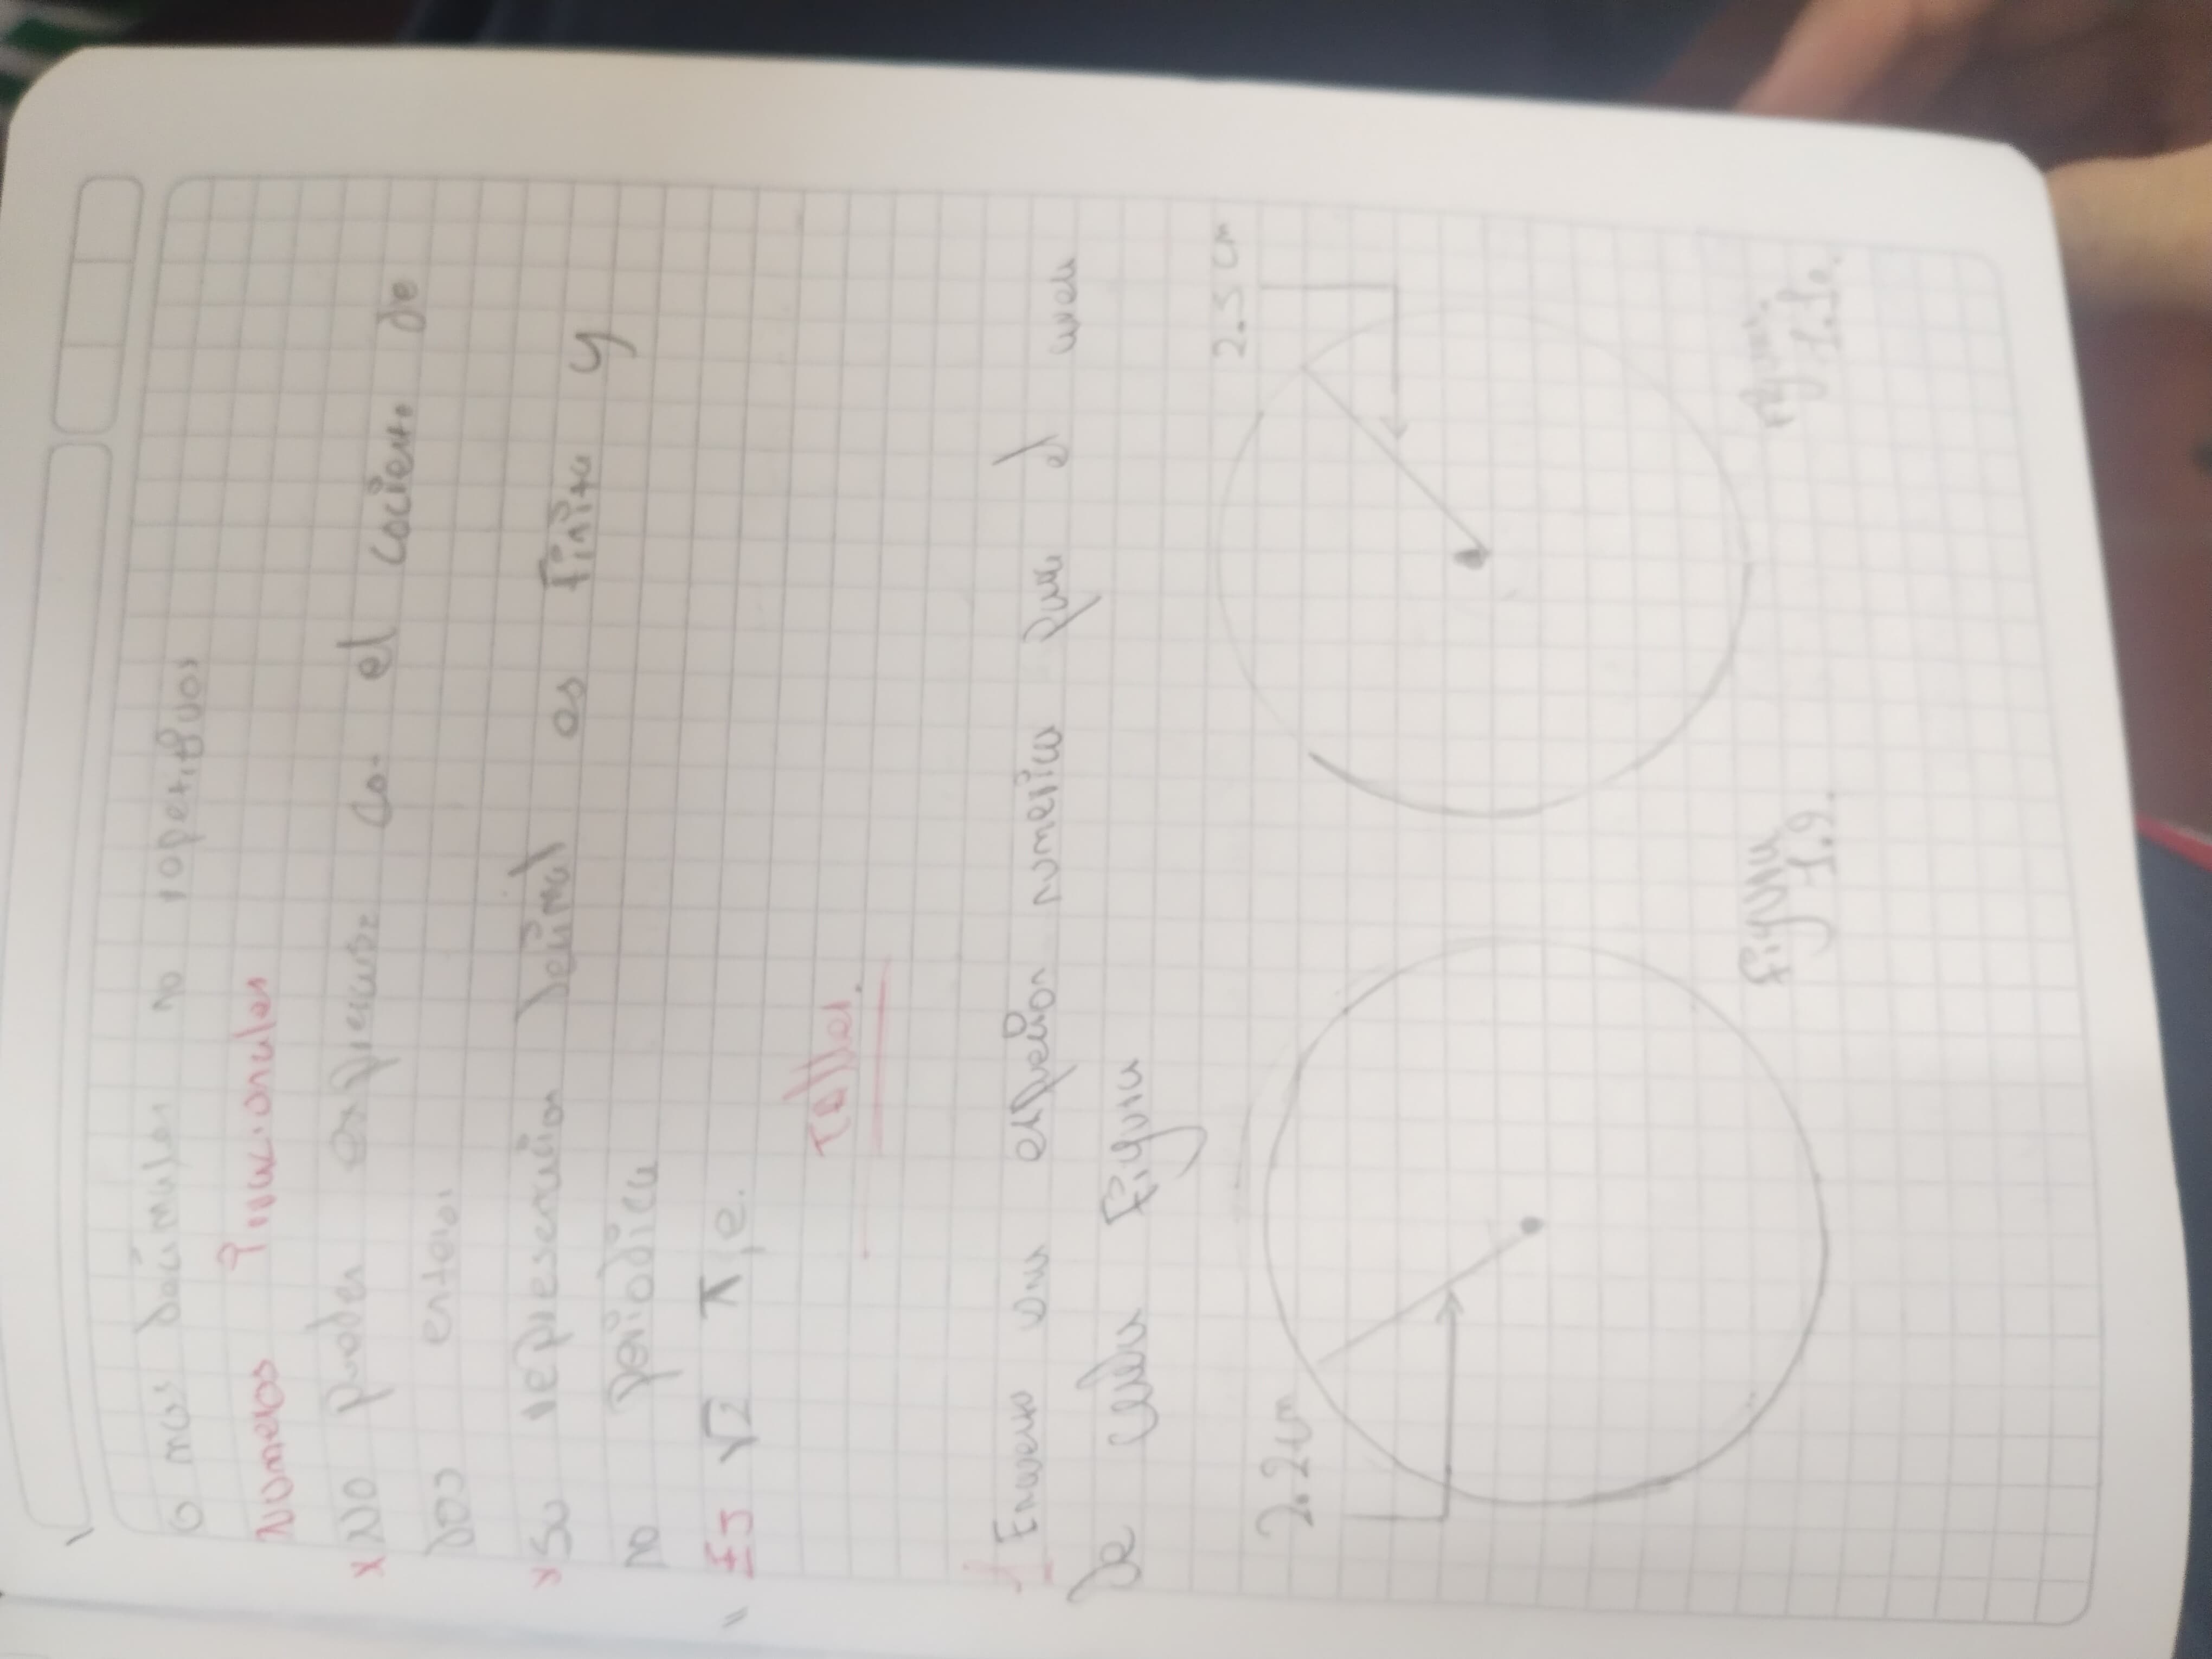 o mas decimales no repetitivos
Numeros Irracionales
x No pueden expresarse con el cociente de
dos enteros
x Su representacion decimal es finita y
no periodica
" Ej √2 π, e.
Taller.
1 Encuentro una expresion numerica para el area
de cada figura
2.2 cm
2.5 cm
Figura
1.9.
Figura
1.10.